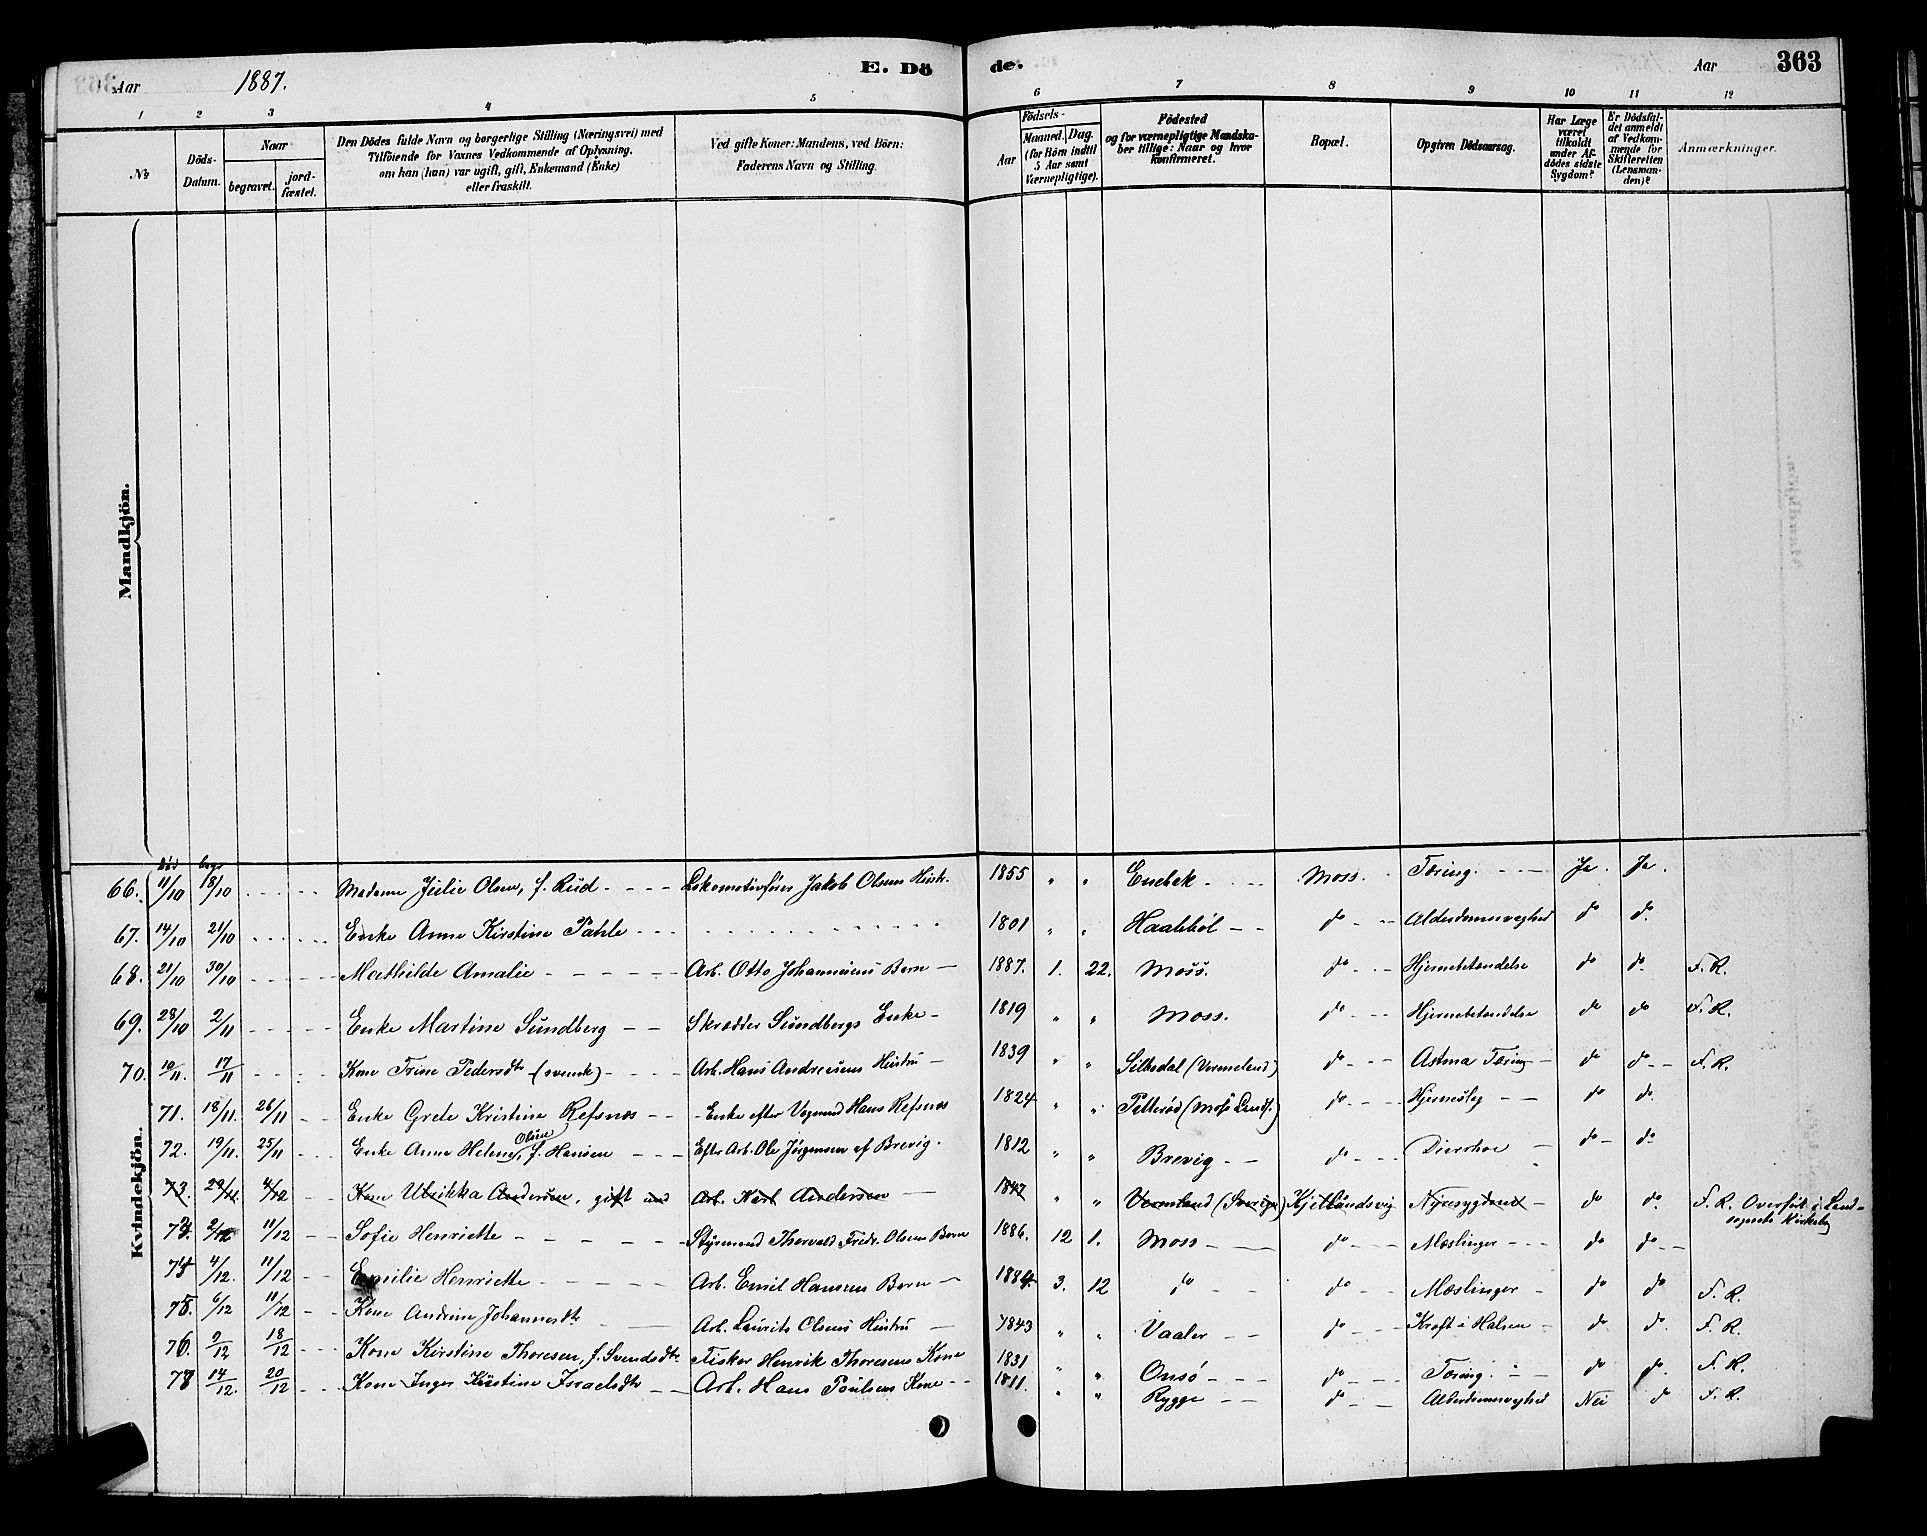 Aar 1887. E. Dö de. Aar 363
1 2 3 4 5 6 7 8 9 10 11 12
No
Döds-Datum.
Naar
begravet.
jord-fæstet.
Den Dödes fulde Navn og borgerlige Stilling (Næringsvei) med
Tilföiende for Voxnes Vedkommende af Oplysning,
om han (hun) var ugift, gift, Enkemand (Enke)
eller fraskilt.
Ved gifte Koner: Mandens, ved Börn:
Faderens Navn og Stilling.
Födsels-
Aar
Maaned. Dag.
(for Börn indtil
5 Aar samt
Værnepligtige).
Födested
og for værnepligtige Mandska-
ber tillige: Naar og hvor
konfirmeret.
Bopæl.
Opgiven Dödsaarsag.
Har Læge
været
tilkaldt
under Af-
dödes sidste
Sygdom?
Er Dödsfal-
det anmeldt
af Vedkom-
mende for
Skifteretten
(Lensman-
den)?
Anmærkninger.
Mandkjön.
Kvindekjön.
Död begr.
66. 11/10 18/10 Madame Julie Olsen, f. Rud Lokomotivfører Jakob Olsens Hust. 1855 " " Enebak Moss. Tæring. Ja. Ja.
67. 14/10 21/10 Enke Anne Kirstine Pahle 1801 " " Haabøl do Alderdomssvaghed do do
68. 21/10 30/10 Mathilde Amalie Arb. Otto Johannesens Barn 1887. 1. 22. Moss. do Hjernebetændelse do do F. R.
69. 28/10 2/11 Enke Martine Sundberg Skrædder Sundbergs Enke 1819 " " Moss. do Hjernebetændelse do do F. R.
70. 10/11 17/11 Kone Trine Pedersdtr (svensk) Arb. Hans Andreesens Hustru 1839 " " Silbodal (Vermeland) do Astma Tæring do do F. R.
71. 18/11 26/11 Enke Grete Kristine Refsnæs Enke efter Vognmd Hans Refsnæs 1824 " " Pelterød (Moss Lands.) do Hjerneslag do do
72. 19/11 25/11 Enke Anne Helene Olsen, f. Hansen Efter Arb. Ole Jørgensen af Brevig. 1812 " " Brevig do Diarrhoe do do
73. 29/11 4/12 Kone Ulrikka Andersen, gift med Arb. Karl Andersen 1847 " " Vermland (Sverige) Kjellandsvig Nyresygdom do do F. R. Overført i Land-
sognets Kirkebog
73. 2/12 11/12 Sofie Henriette Styrmand Thorvald Fredr. Olsens Barn 1886. 12 1. Moss do Mæslinger do do
74 4/12. 11/12 Emilie Henriette Arb. Emil Hansens Barn 1884. 3. 12 do do Mæslinger do do F. R.
75. 6/12 11/12 Kone Andrine Johannesdtr Arb. Laurits Olsens Hustru 1843 " " Vaaler do Kræft i Halsen do do F. R.
76. 9/12 18/12 Kone Kirstine Thoresen, f. Svendsdtr Fisker Henrik Thoresens Kone 1831 " " Onsø do Tæring do do F. R.
78 14/12. 20/12 Kone Inger Kirstine Israelsdtr Arb. Hans Poulsens Kone 1811. " " Rygge do Alderdomssvaghed Nei do F. R.